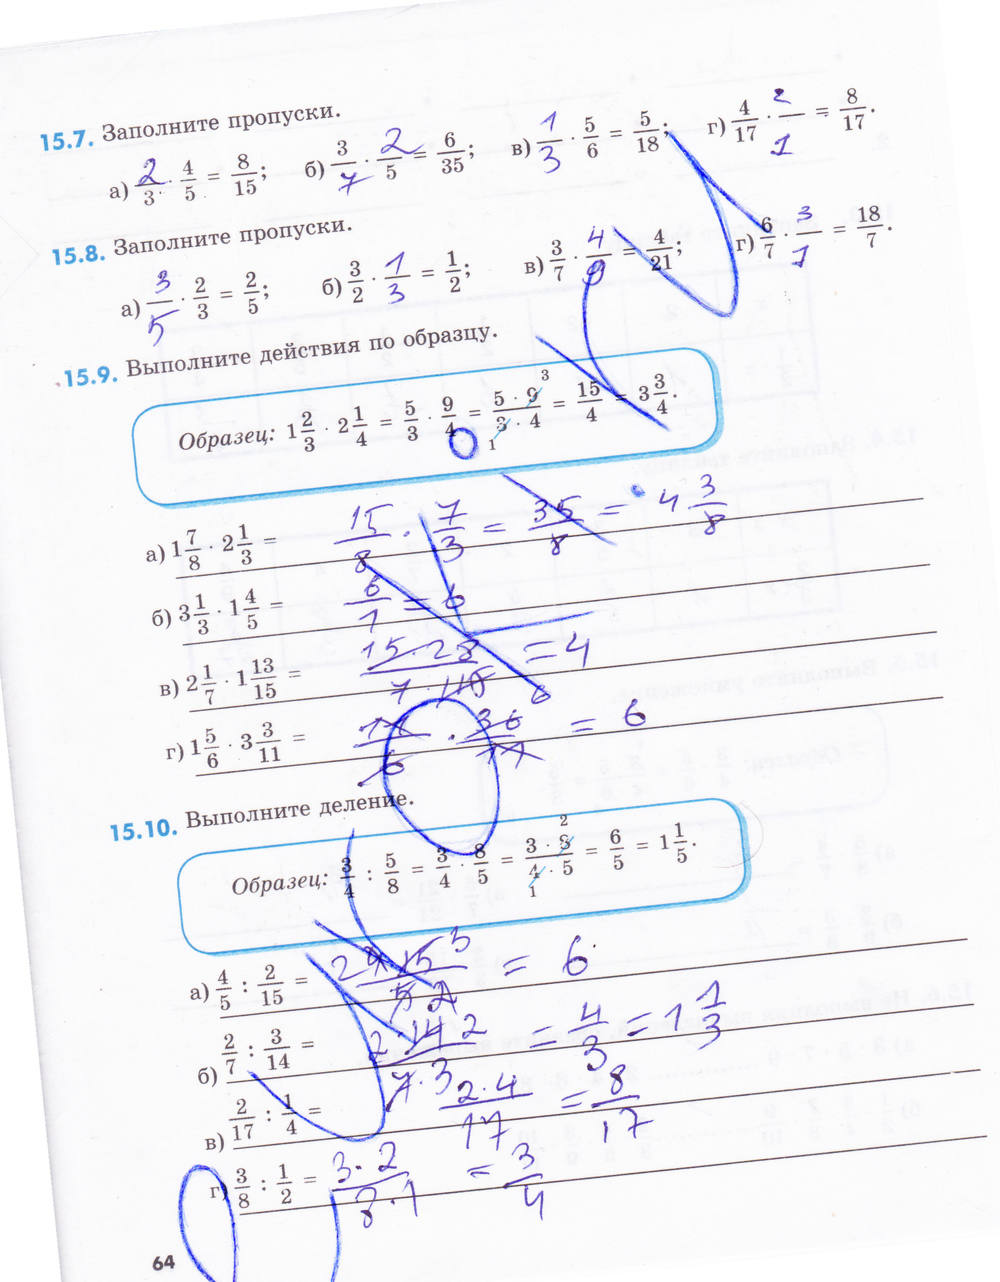 15.7. Заполните пропуски.
а) 2/3 · 4/5 = 8/15; б) 3/7 · 2/5 = 6/35; в) 1/3 · 5/6 = 5/18; г) 4/17 · 2/1 = 8/17.
15.8. Заполните пропуски.
а) 3/5 · 2/3 = 2/5; б) 3/2 · 1/3 = 1/2; в) 3/7 · 4/9 = 4/21; г) 6/7 · 3/1 = 18/7.
15.9. Выполните действия по образцу.
Образец: 1 2/3 · 2 1/4 = 5/3 · 9/4 = 5 · 9 3/3 · 4 1 = 15/4 = 3 3/4.
а) 1 7/8 · 2 1/3 = 15/8 · 7/3 = 35/8 = 4 3/8
б) 3 1/3 · 1 4/5 = 6/1 = 6
в) 2 1/7 · 1 13/15 = 15·28/7·15 = 4
г) 1 5/6 · 3 3/11 = 11/6 · 36/11 = 6
15.10. Выполните деление.
Образец: 3/4 : 5/8 = 3/4 · 8/5 = 3 · 8 2/4 · 5 1 = 6/5 = 1 1/5.
а) 4/5 : 2/15 = 2 4·15 3/5·2 = 6
б) 2/7 : 3/14 = 2·14 2/7·3 = 4/3 = 1 1/3
в) 2/17 : 1/4 = 2·4/17 = 8/17
г) 3/8 : 1/2 = 3·2/8·1 = 3/4
64